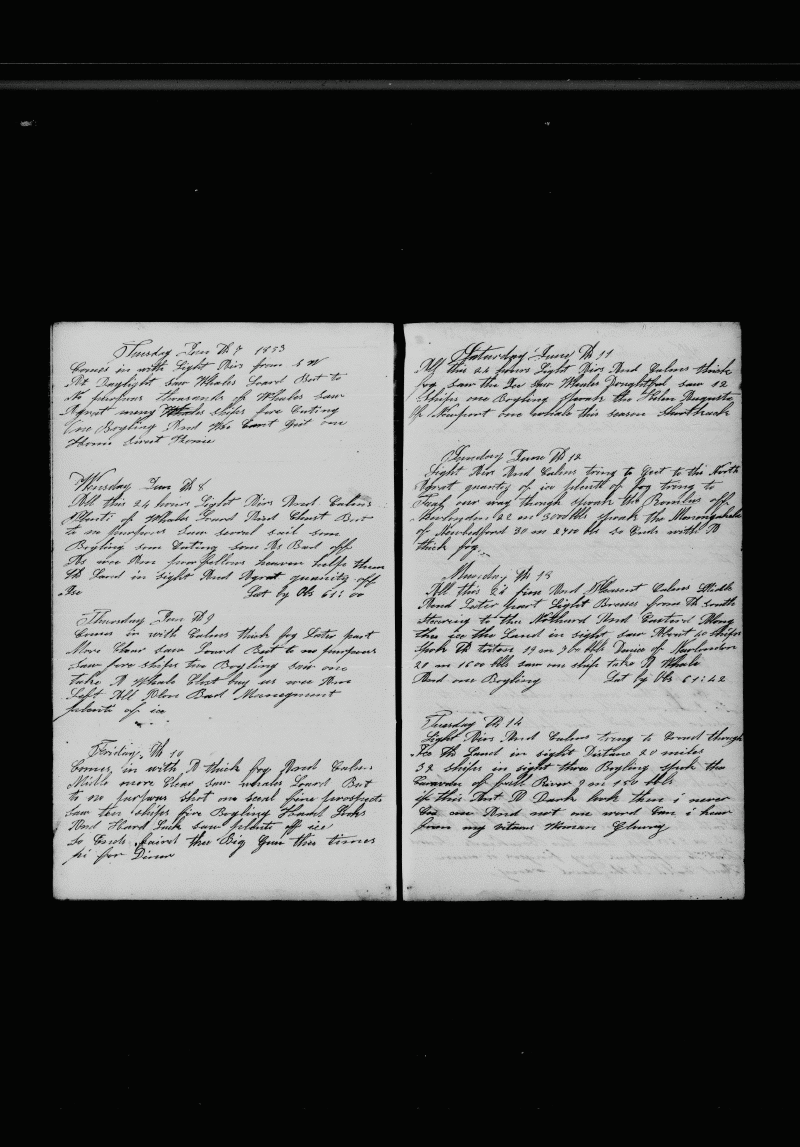 Tuesday June Th 7 1853
Comes in with Light Airs from S W
At Daylight Saw Whales Loard But to
No purpous thousands of Whales saw
Agreat meny Whales ships five Cuting
One Boyling And We Cant Geit one
Wensday June Th 8
All this 24 hours Light Airs And Calms
Plenti of Whales Loard And Chast But
to no purpous Saw several sail som
Boyling som Cuting som As Bad off
As wee Are poor fellows heaven helps them
Th Land in sight And Agrat quanity off
Ice Lat by Obs 61:00
Thursday June Th 9
Comes in with Calms thick fog Later part
More Clear saw Loard But to no purpous
Saw five ships two Boyling saw one
take A Whale Clost buy us wee Are
Left All Alone Bad Management
plenti of ice
Friday Th 10
Comes in with A thick fog And Calm
Midle more Clear saw whales Loard But
to no purpous shot one seal fine prospects
Saw ten ships five Boyling Hard Looks
And Hard Luck saw plenti off ice
So Ends faird the Big Gun three times
pi for Diner
Saturday June Th 11
All this 24 hours Light Airs And Calms thick
fog saw the Ice Saw Whales Doughtful saw 12
Ships one Boyling Spoak the Helen Augusta
of Newport one whale this season
Sunday June Th 12
Light Airs And Calms tring to Geit to the North
Agrat quanity of ice plenti of fog tring to
our way though spoak the Romulus off
Newlondon 22 m 300 bbls spoak the Monongahela
of Newbedford 30 m 2700 bbl so Ends with A
thick fog
Munday Th 13
All this 24 fine And Plesent Calms Midle
And Later part Light Breses from Th South
Stearing to the Nothard And Eastard Along
the ice the Land in sight saw About 20 ships
Spok Th 19 m 900 bbls of Newlondon
20 m 1600 bbls saw one ship take A Whale
And one Boyling Lat by Obs 61:42
Tuesday Th 14
Light Airs And Calms tring to though
Ice Th Land in sight Distane 20 miles
32 ships in sight three Boyling spok the
Caravan of faull River 9 m 150 bbls
if this Aint A Dark look then i never
see one And not one word Can i hear
from my